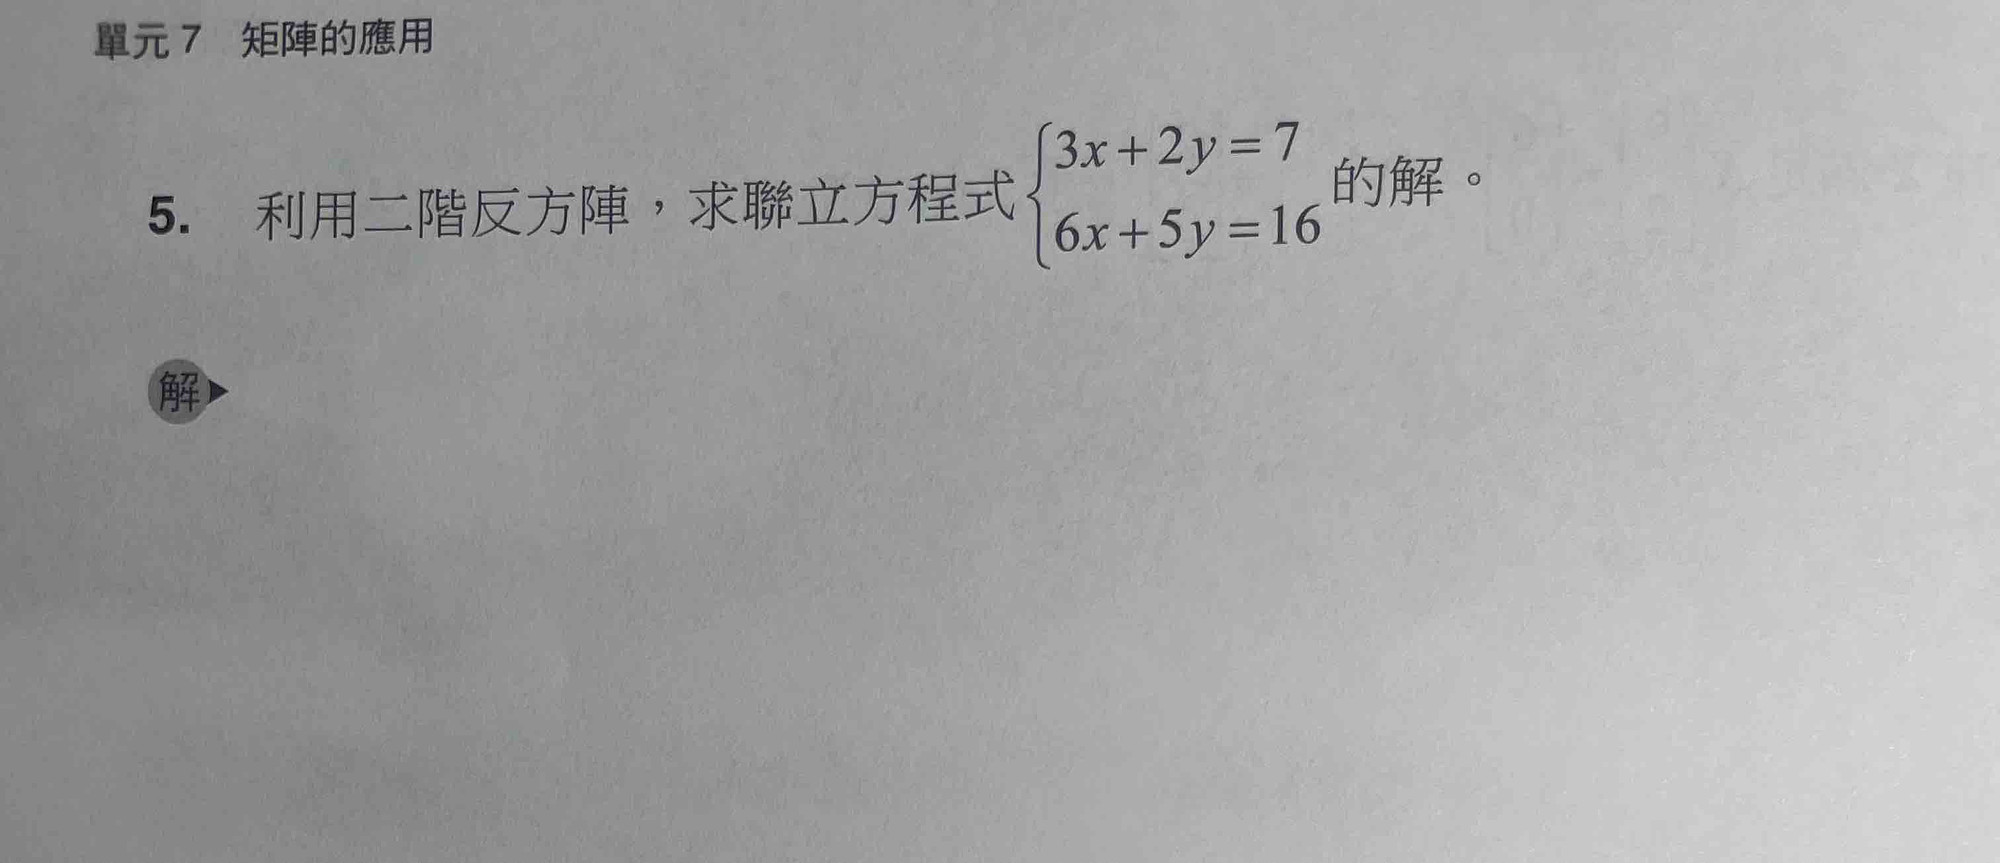 單元 7 矩陣的應用
5. 利用二階反方陣，求聯立方程式{3x+2y=7
6x+5y=16 的解。
解